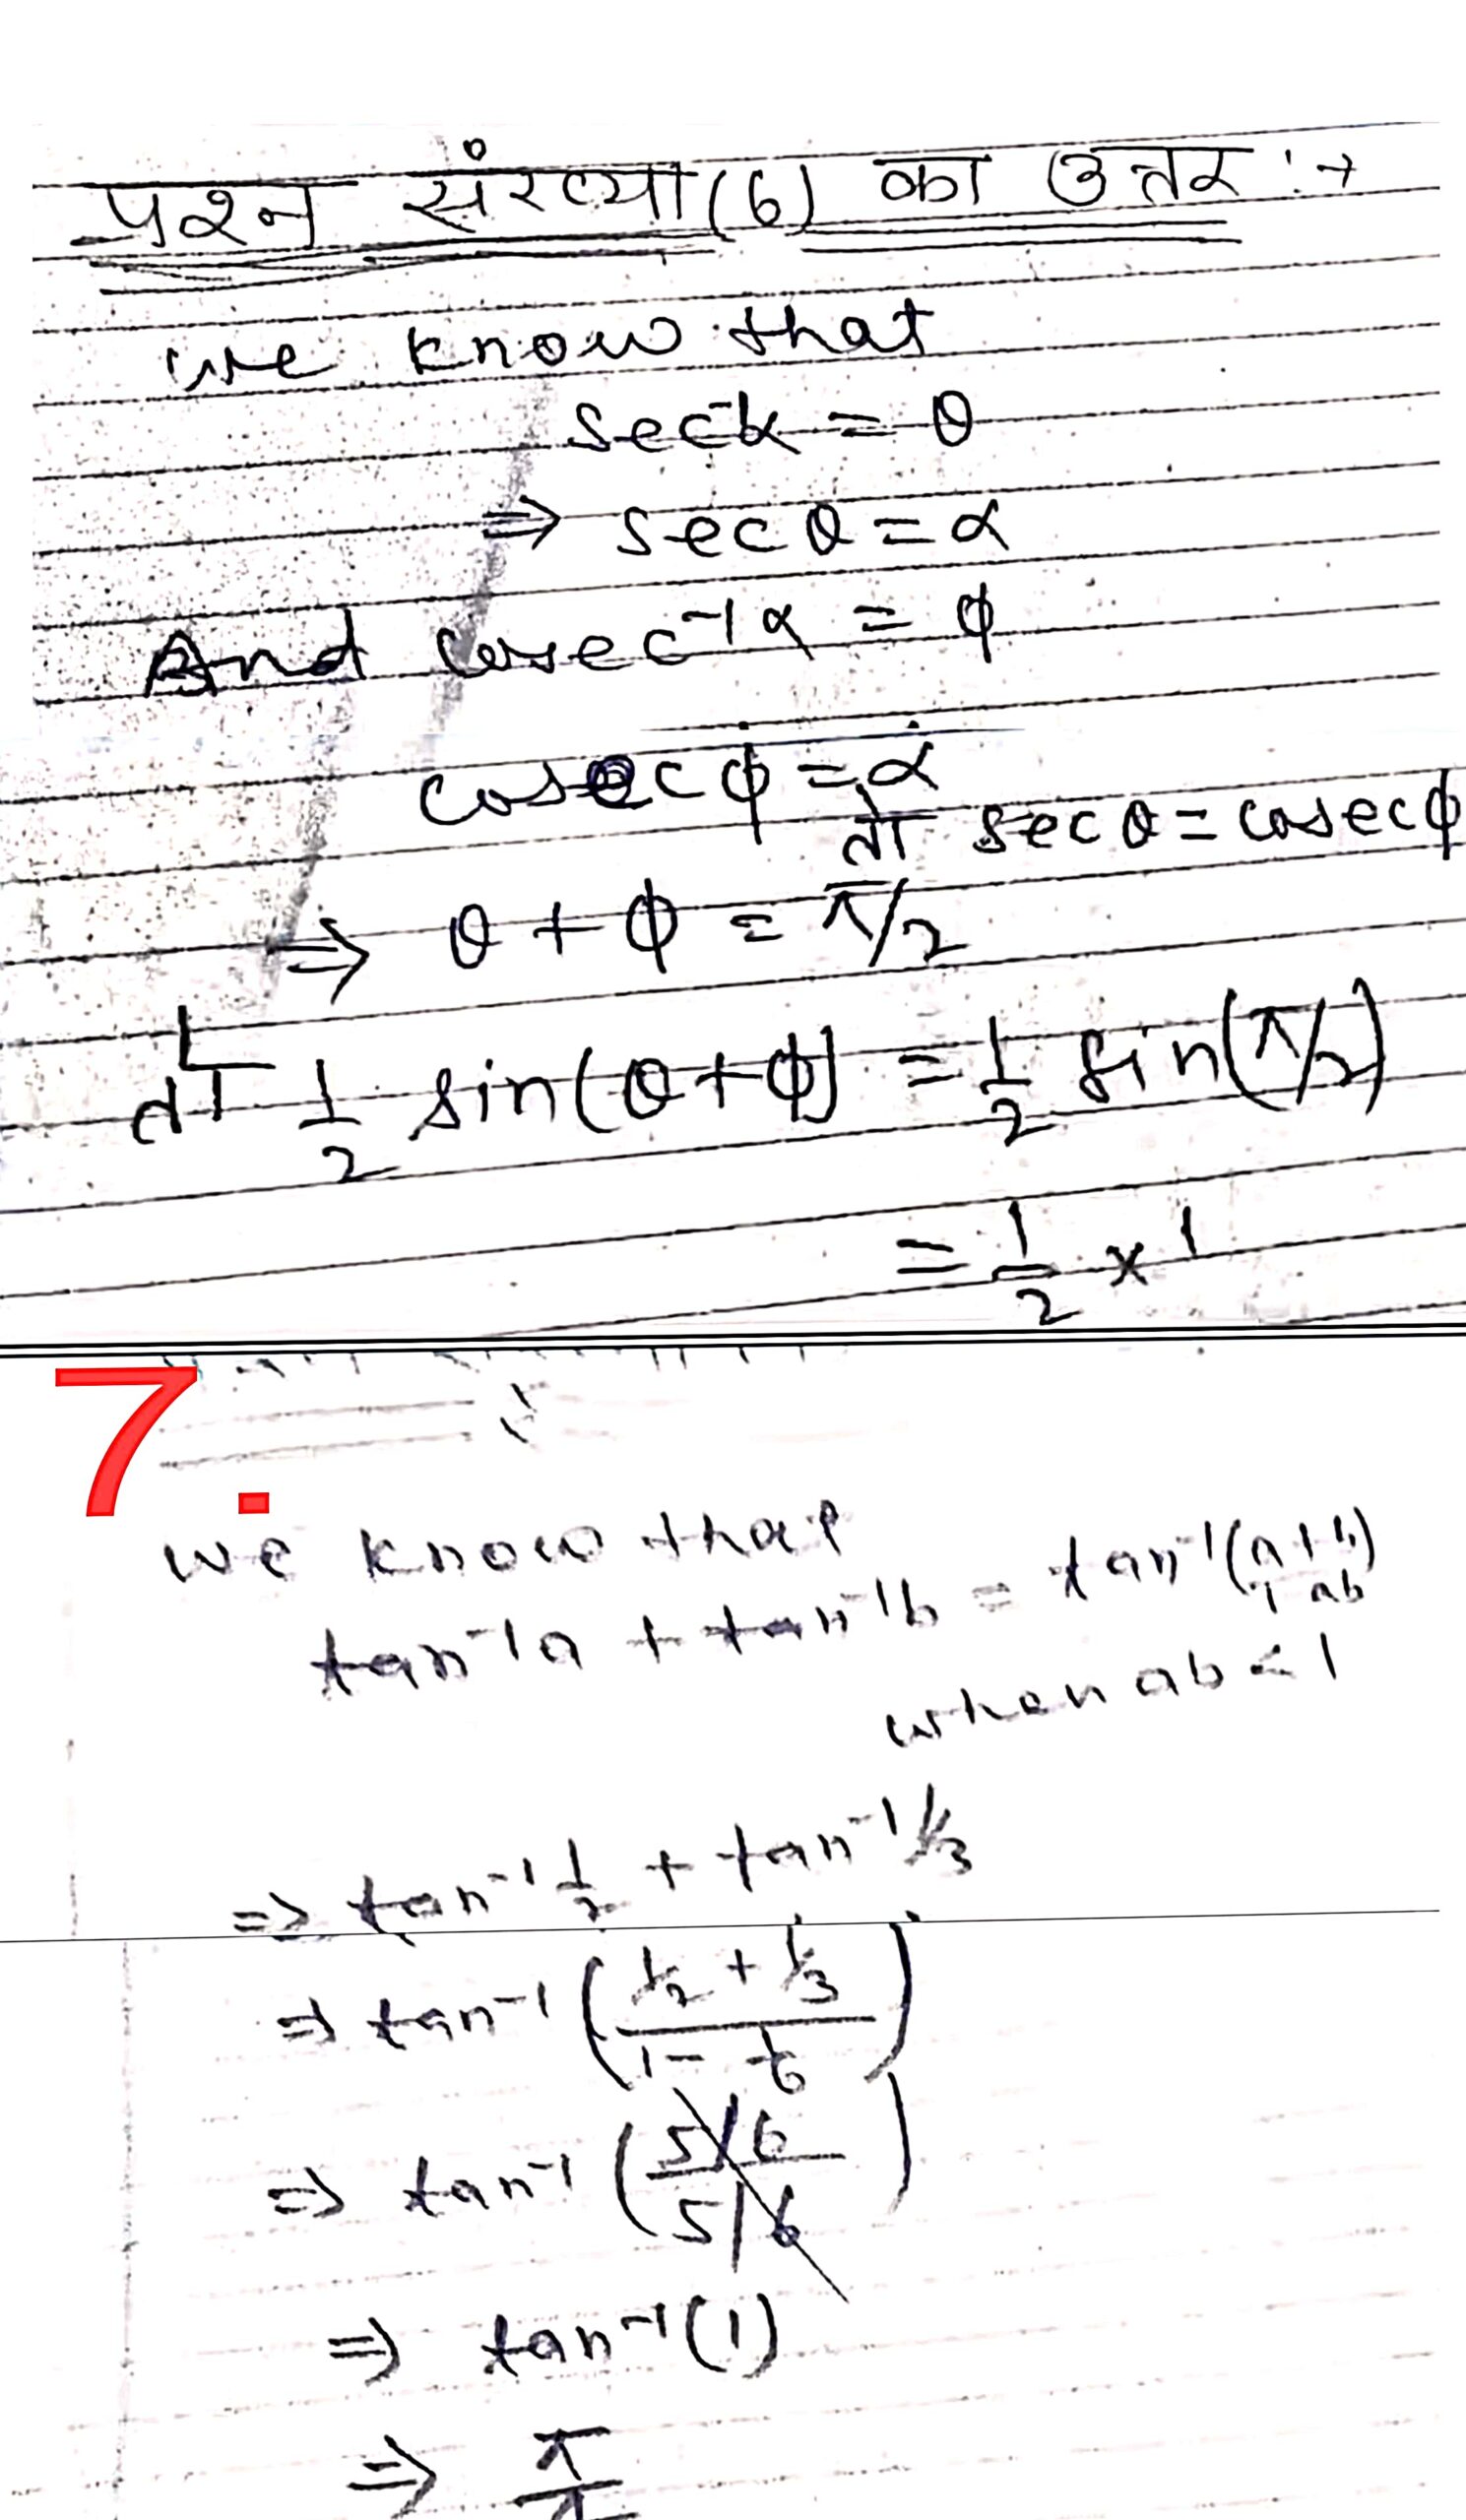 प्रश्न संख्या (6) का उत्तर :→
we know that
sec⁻¹α = θ
⇒ sec θ = α
And cosec⁻¹α = ϕ
cosec ϕ = α
तो sec θ = cosec ϕ
⇒ θ + ϕ = π/2
तो 1/2 sin(θ+ϕ) = 1/2 sin(π/2)
= 1/2 × 1
7.
we know that
tan⁻¹a + tan⁻¹b = tan⁻¹(a+b/1-ab)
when ab < 1
⇒ tan⁻¹ 1/2 + tan⁻¹ 1/3
⇒ tan⁻¹ (1/2 + 1/3 / 1 - 1/6)
⇒ tan⁻¹ (5/6 / 5/6)
⇒ tan⁻¹(1)
⇒ π